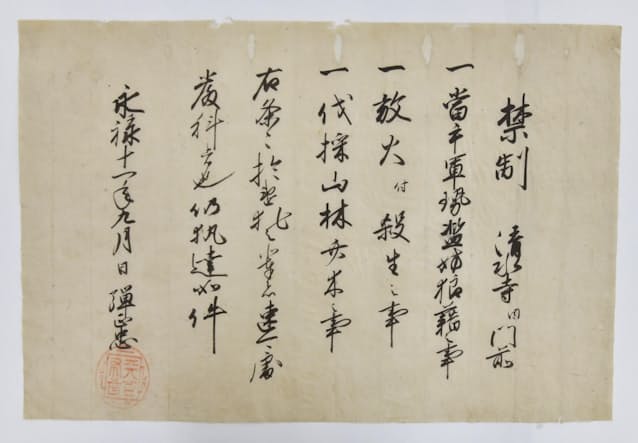 禁制 清水寺同門前
一當手軍勢濫妨狼藉事
一放火付殺生之事
一伐採山林竹木之事
右条々於違犯之輩者速可處
嚴科者也仍執達如件
永禄十一年九月日 弾正忠